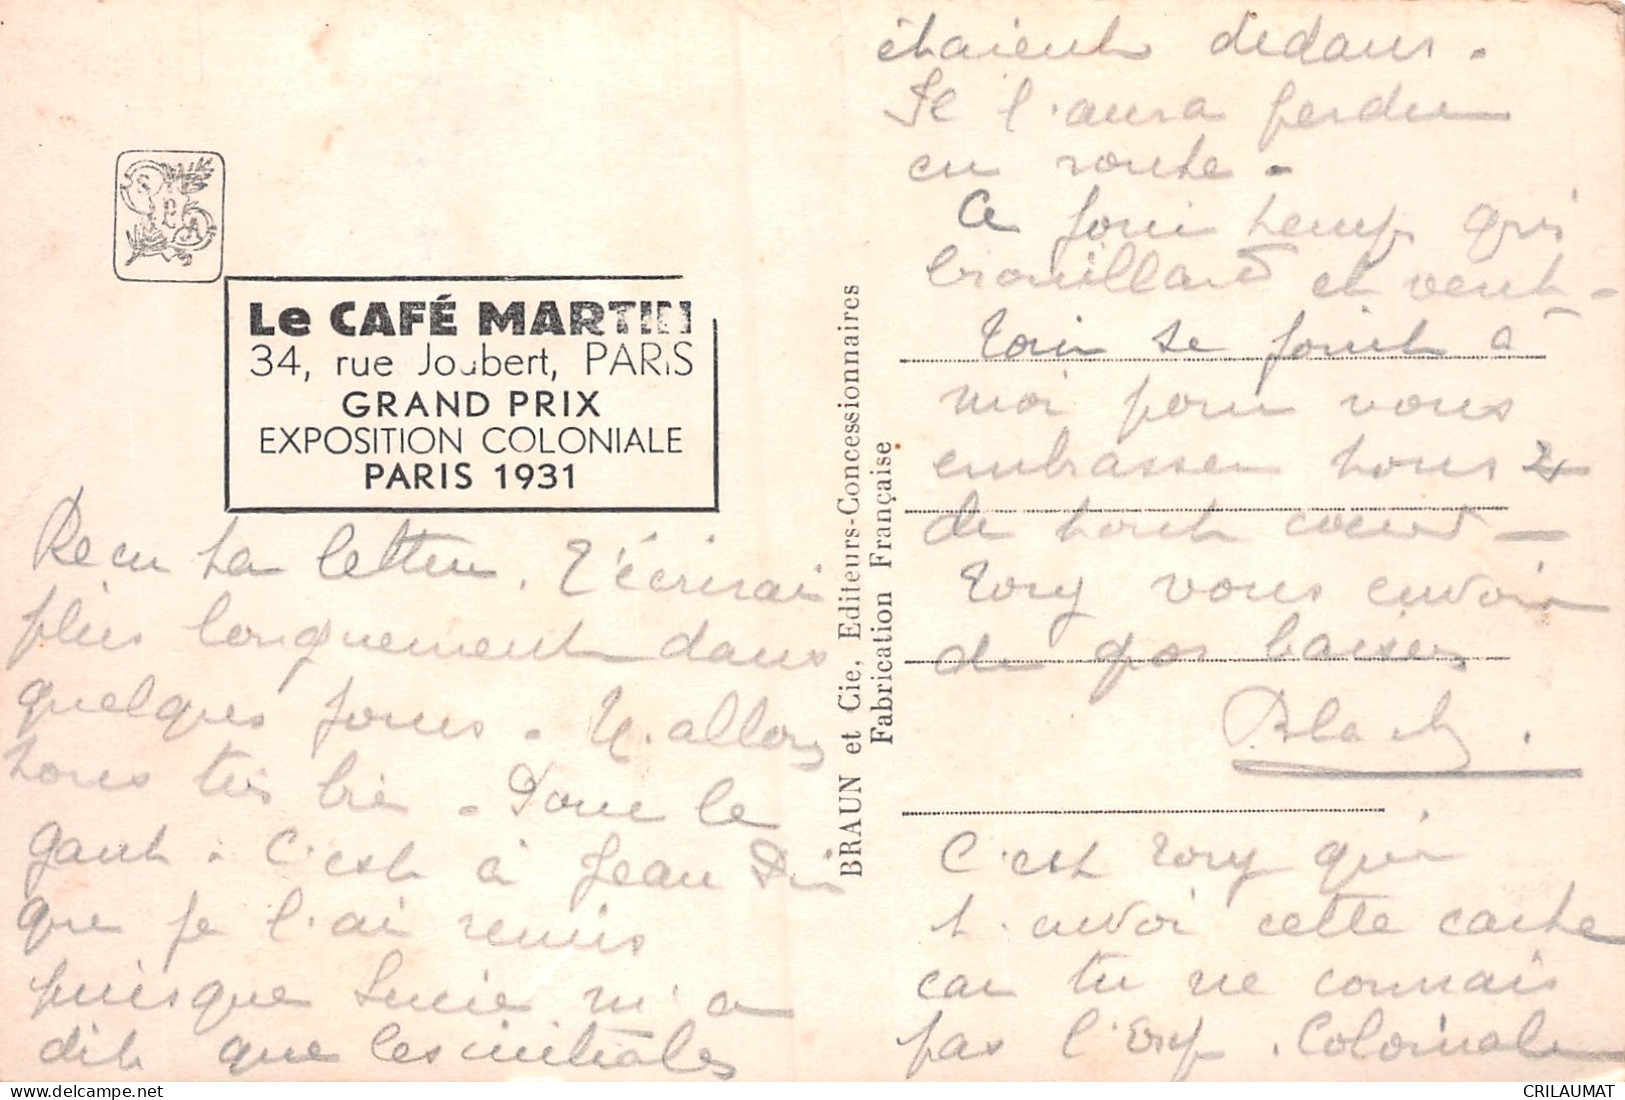 Le CAFÉ MARTIN
34, rue Joubert, PARIS
GRAND PRIX
EXPOSITION COLONIALE
PARIS 1931
Recu ta lettre. T'écrirai
plus longuement dans
quelques jours. N. allons
tous très bie. Pour le
gant. C'est à Jean
que je l'ai remis
puisque Lucie m'a
dit que les initiales
BRAUN et Cie, Editeurs-Concessionnaires
Fabrication Française
étaient dedans.
Il l'aura perdu
en route.
Ce jour temps gris
brouillard et vent.
Tory se joint à
moi pour vous
embrasser tous 2
de tout coeur
Tory vous envoie
de gros baisers
C'est Tory qui
t'envoi cette carte
car tu ne connais
pas l'Exp. Coloniale
CRILAUMAT